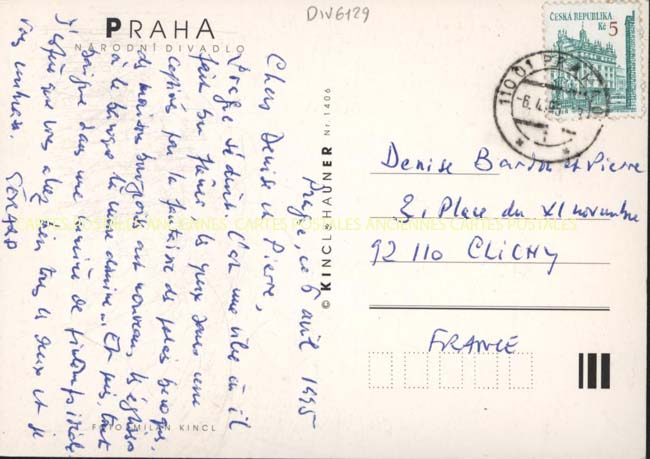 DIV6129
PRAHA
NÁRODNÍ DIVADLO
Prague, ce 6 avril 1995
Chers Denise et Pierre,
Prague séduit. C'est une ville où il
faut bien garder les yeux
captivé par la fantaisie des palais baroques,
des maisons bourgeoises art nouveau, les églises
où le baroque domine... Et puis, tout
baigne dans une lumière de
J'espère que vous allez bien tous les deux et je
vous embrasse.
© KINCL & HAUNER Nr. 1406
FOTO MILAN KINCL
ČESKÁ REPUBLIKA
Kč 5
110 01 PRAHA
-6.4.95
Denise et Pierre
3, Place du XI novembre
92 110 CLICHY
FRANCE
CARTES POSTALES ANCIENNES CARTES POSTALES ANCIENNES CARTES POSTALES